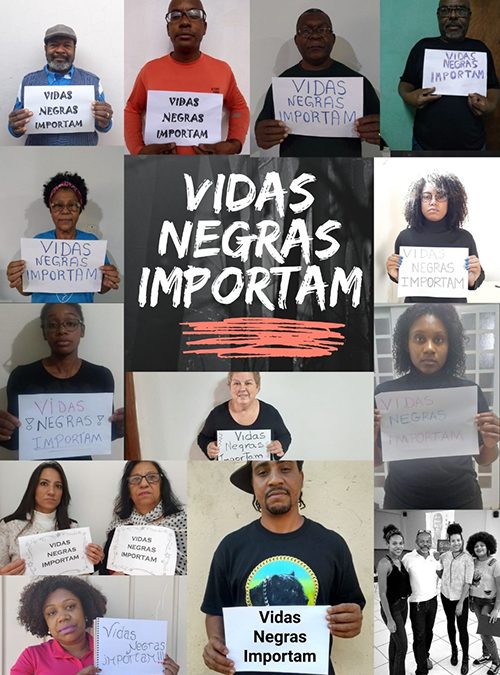 VIDAS
NEGRAS
IMPORTAM
VIDAS
NEGRAS
IMPORTAM
VIDAS
NEGRAS
IMPORTAM
VIDAS
NEGRAS
IMPORTAM
VIDAS
NEGRAS
IMPORTAM
VIDAS
NEGRAS
IMPORTAM
VIDAS
NEGRAS
IMPORTAM
VIDAS
! NEGRAS !
IMPORTAM
VIDAS
NEGRAS
IMPORTAM
Vidas
Negras
Importam
VIDAS
NEGRAS
IMPORTAM
VIDAS
NEGRAS
IMPORTAM
Vidas
Negras
Importam
Vidas
Negras
IMPORTAM!!!